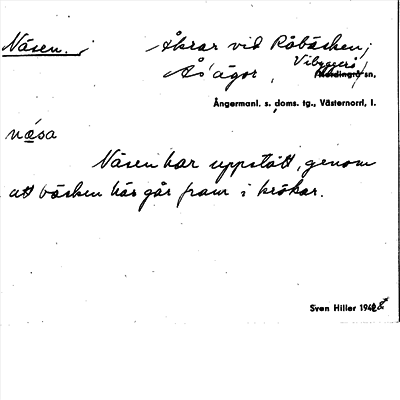 Näsen.
Åkrar vid Råbäcken,
Ås' ägor, Vibyggerå
sn,
Ångermanl. s. doms. tg., Västernorrl, l.
näsa
Näsen har uppstått, genom
att bäcken här går fram i krökar.
Sven Hiller 194